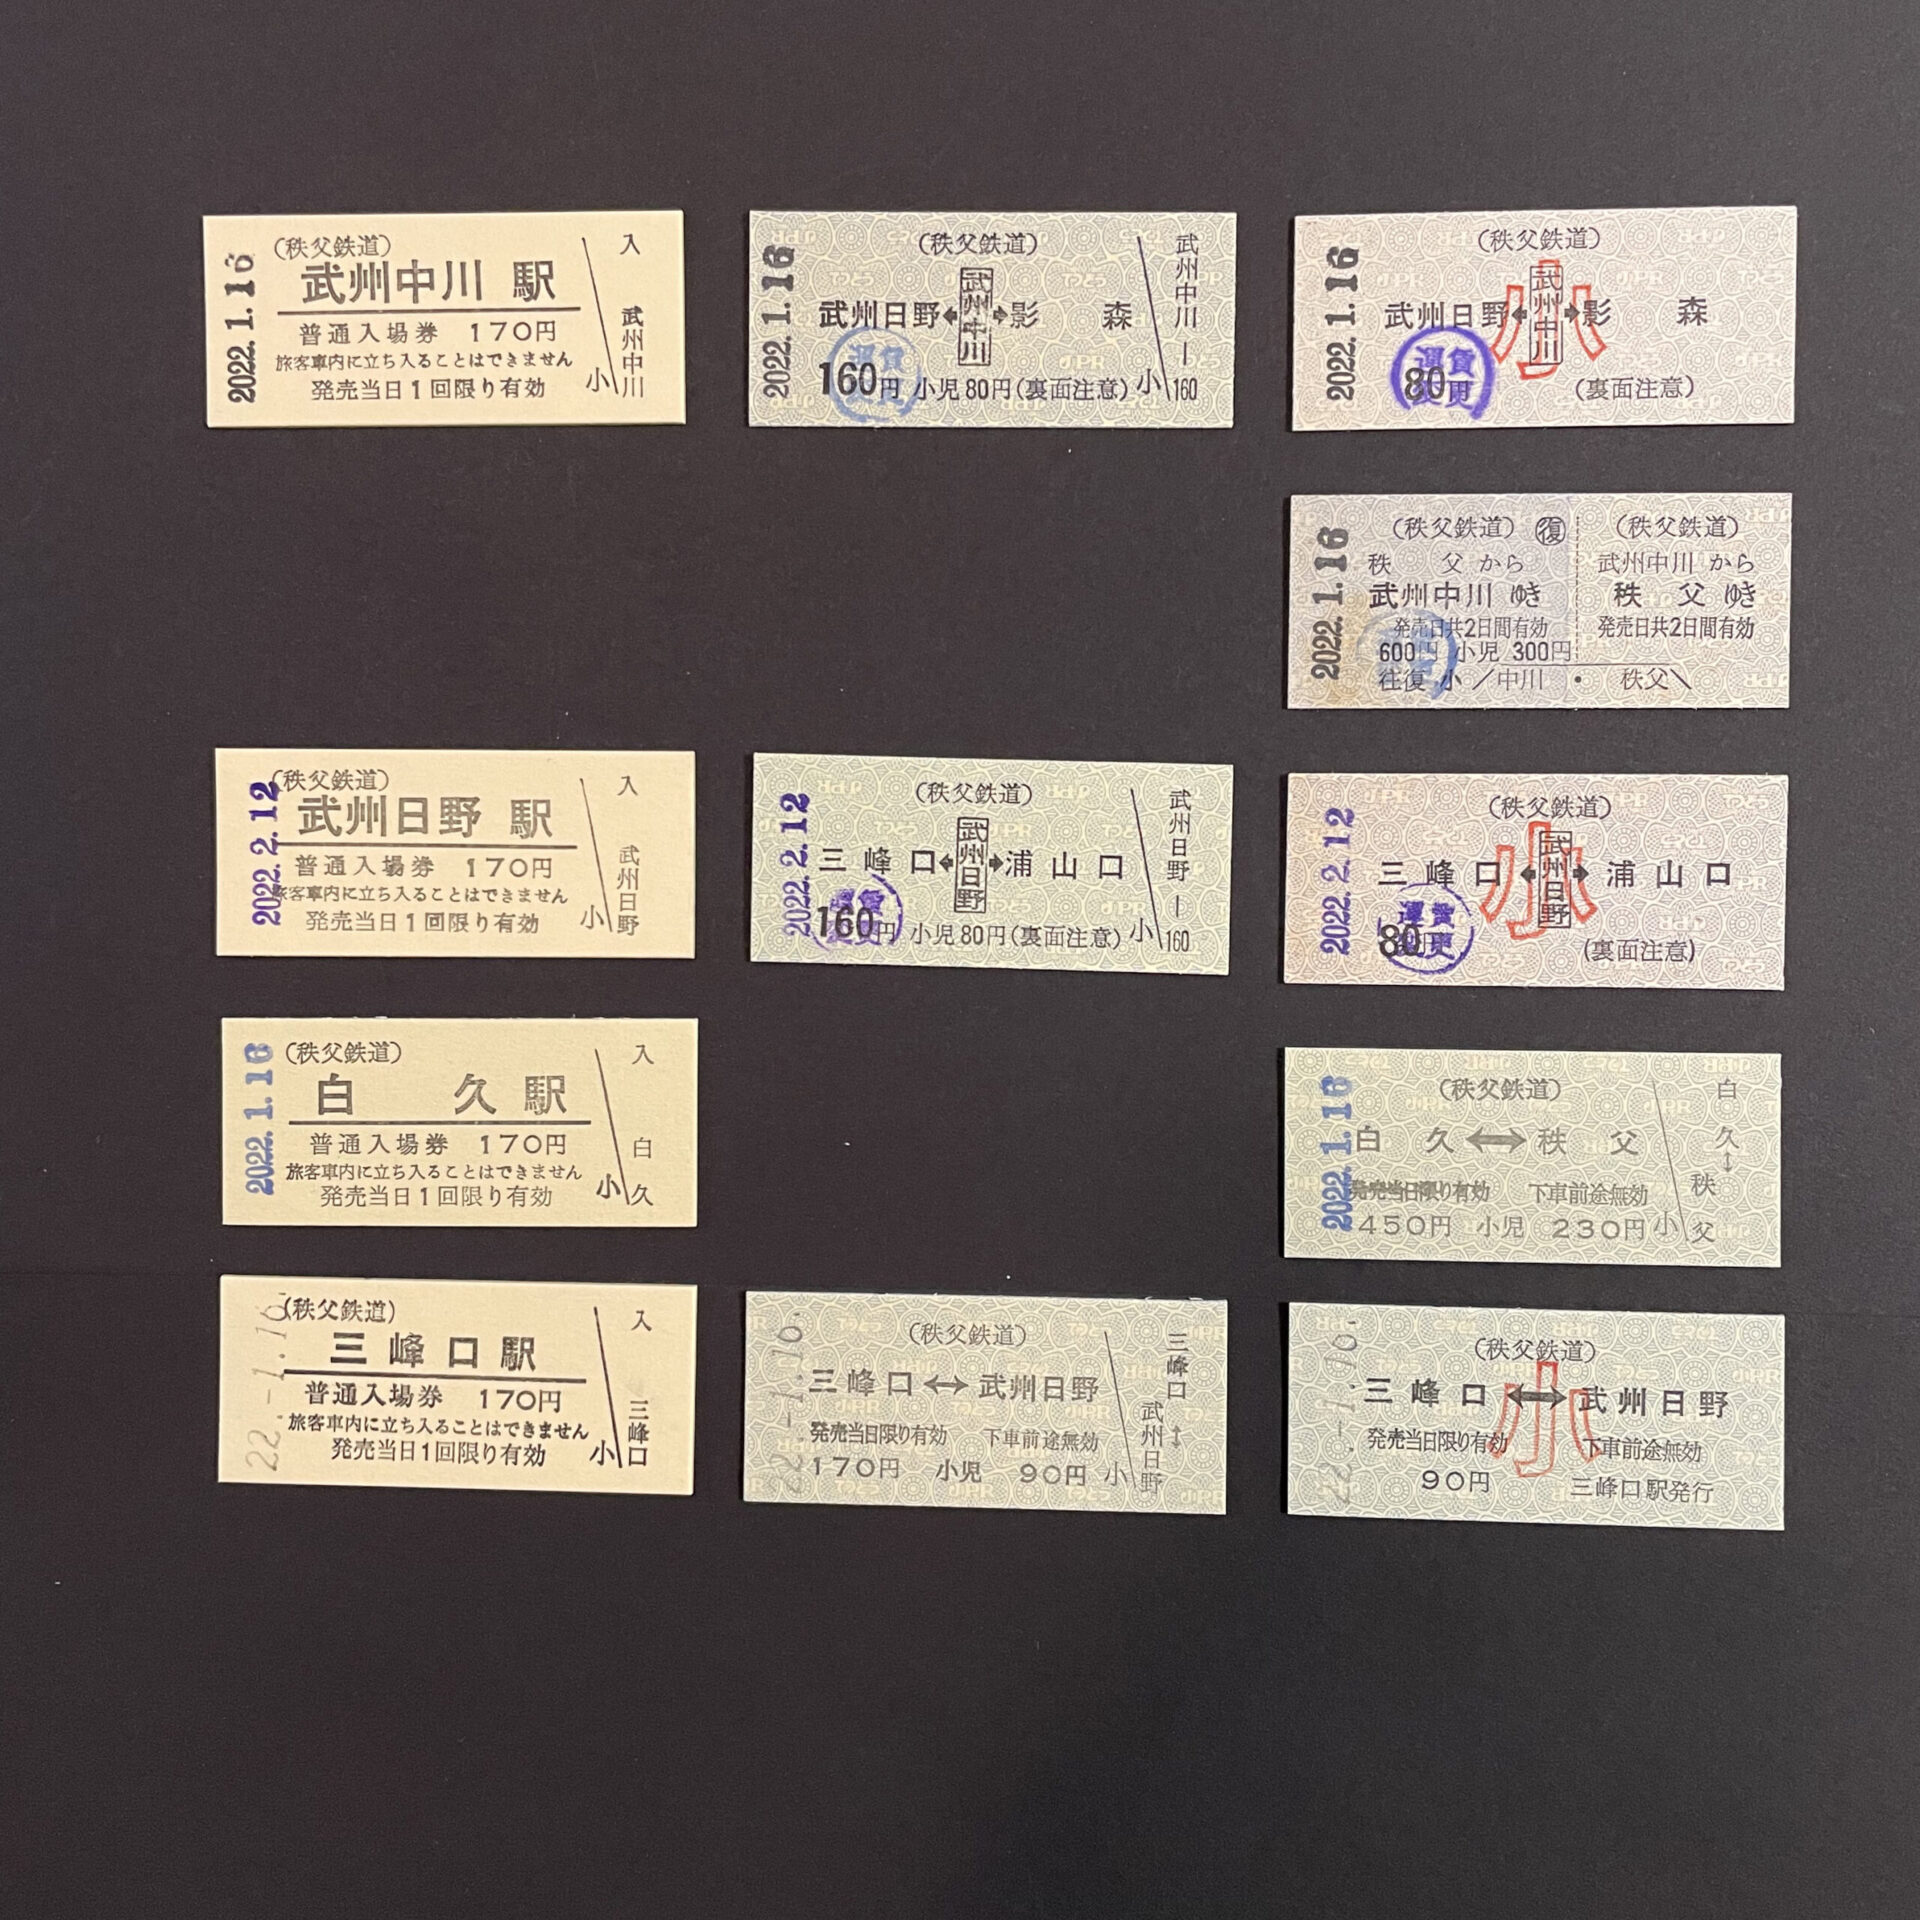 2022.1.16
(秩父鉄道)
武州中川 駅
普通入場券 170円
旅客車内に立ち入ることはできません
発売当日1回限り有効
小
入
武州中川
2022.1.16
(秩父鉄道)
武州日野
武州中川
影 森
160円 小児80円(裏面注意) 小
運賃変更
武州中川―160
2022.1.16
(秩父鉄道)
武州日野
武州中川
影 森
小
80円
運賃変更
(裏面注意)
2022.1.16
(秩父鉄道) 復
秩 父 から
武州中川 ゆき
発売日共2日間有効
600円 小児 300円
往復 小 /中川 ・ 秩父\
(秩父鉄道)
武州中川 から
秩 父 ゆき
発売日共2日間有効
2022.2.12
(秩父鉄道)
武州日野 駅
普通入場券 170円
旅客車内に立ち入ることはできません
発売当日1回限り有効
小
入
武州日野
2022.2.12
(秩父鉄道)
三峰口
武州日野
浦山口
160円 小児80円(裏面注意) 小
運賃変更
武州日野―160
2022.2.12
(秩父鉄道)
三峰口
武州日野
浦山口
小
80円
運賃変更
(裏面注意)
2022.1.16
(秩父鉄道)
白 久 駅
普通入場券 170円
旅客車内に立ち入ることはできません
発売当日1回限り有効
小
入
白久
2022.1.16
(秩父鉄道)
白 久 ↔ 秩 父
発売当日限り有効 下車前途無効
450円 小児 230円 小
白久↔秩父
22.-1.16
(秩父鉄道)
三峰口駅
普通入場券 170円
旅客車内に立ち入ることはできません
発売当日1回限り有効
小
入
三峰口
22.-1.10.
(秩父鉄道)
三峰口 ↔ 武州日野
発売当日限り有効 下車前途無効
170円 小児 90円 小
三峰口↔武州日野
22.-1.10.
(秩父鉄道)
三峰口 ↔ 武州日野
小
発売当日限り有効 下車前途無効
90円 三峰口駅発行